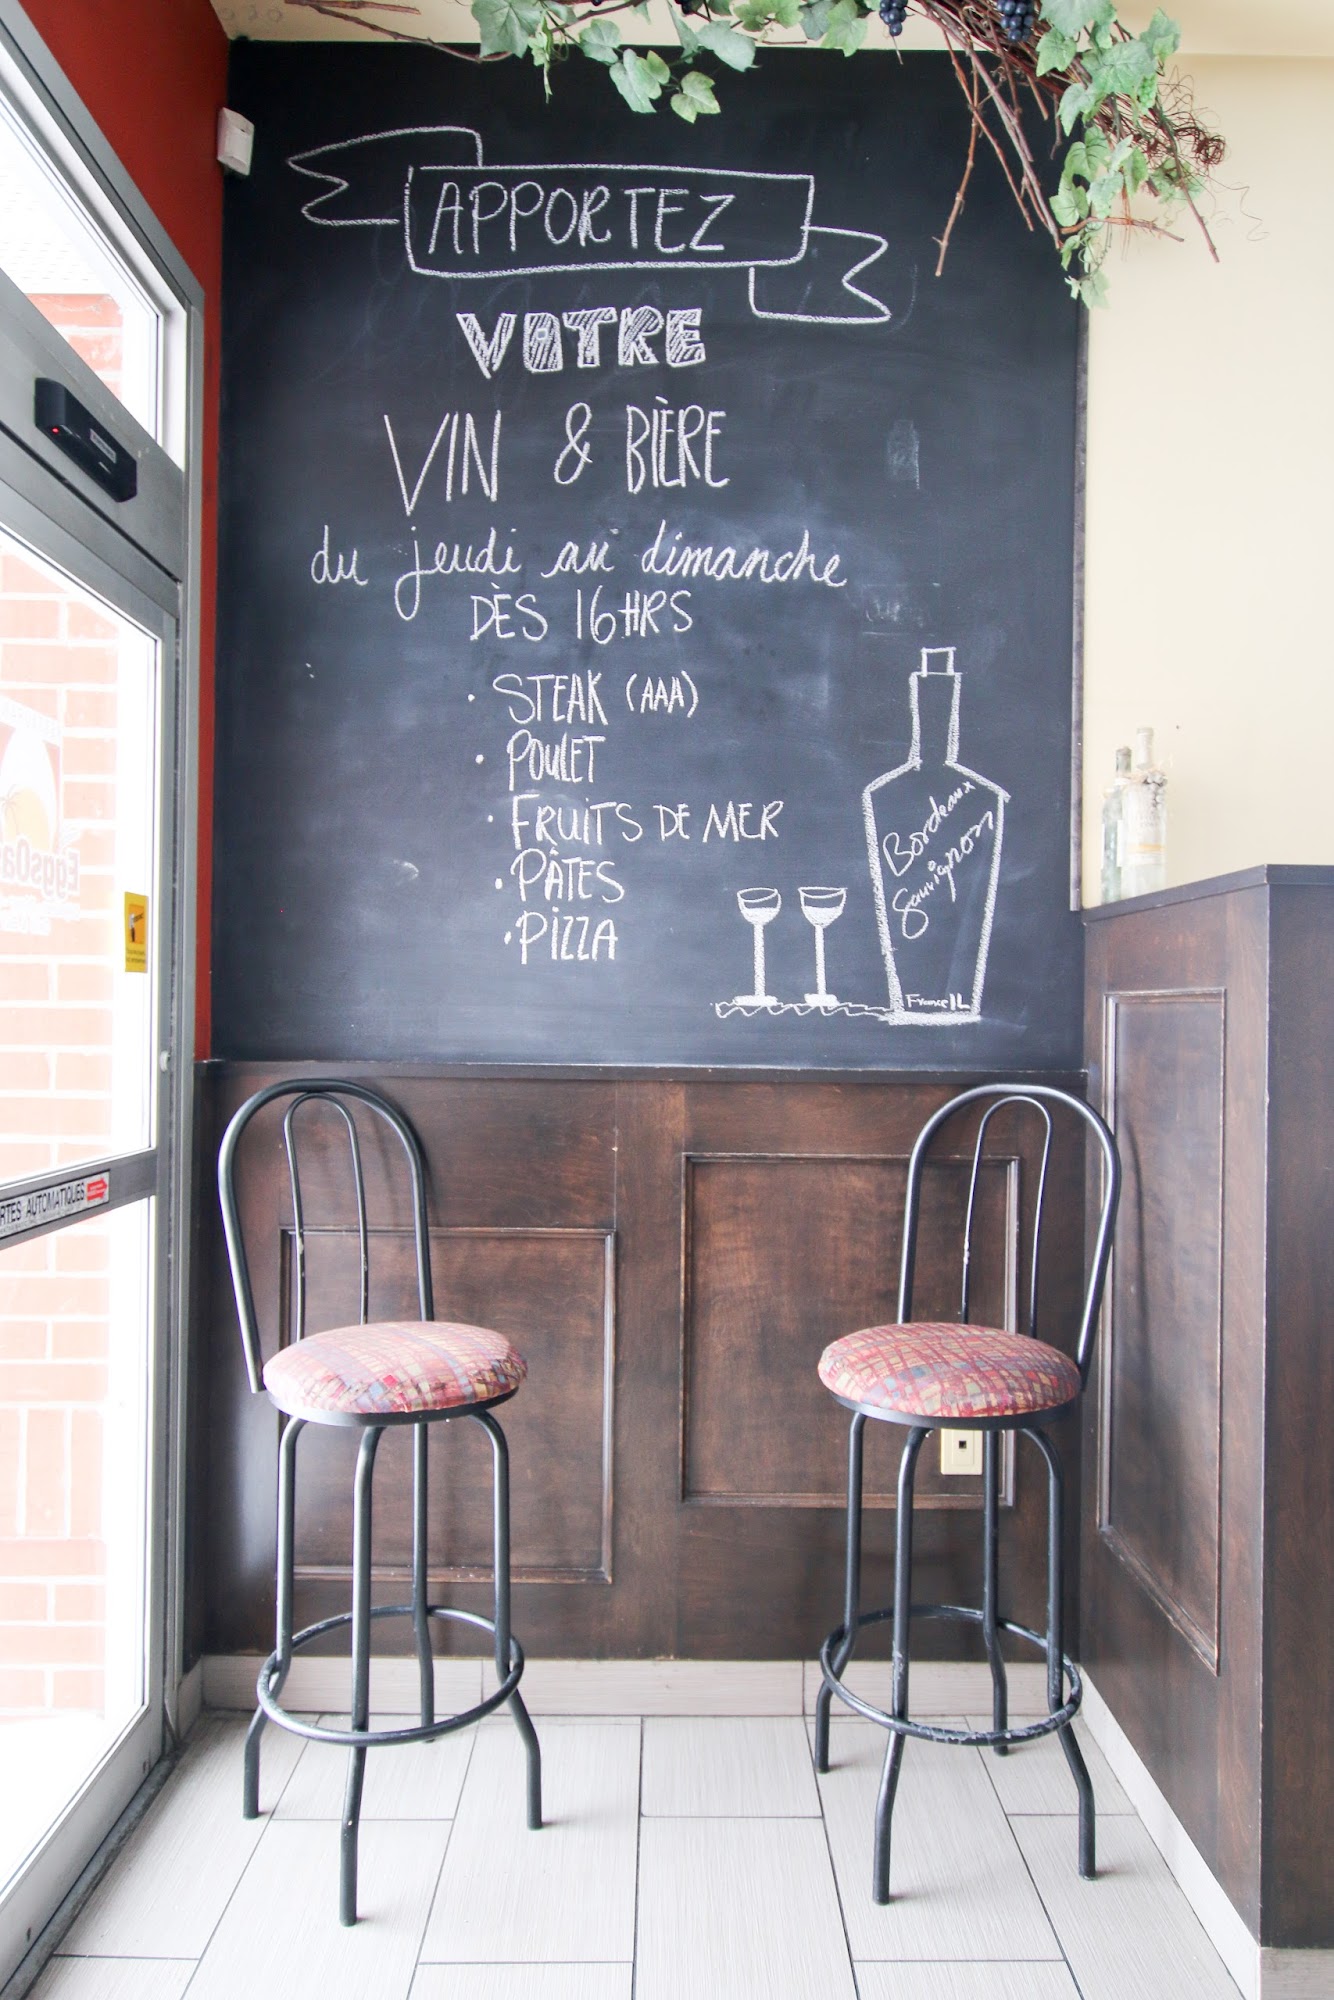 APPORTEZ
VOTRE
VIN & BIÈRE
du jeudi au dimanche
DÈS 16HRS
• STEAK (AAA)
• POULET
• FRUITS DE MER
• PÂTES
• PIZZA
Bordeaux
Sauvignon
France 1L
RTES AUTOMATIQUES
EggsOas